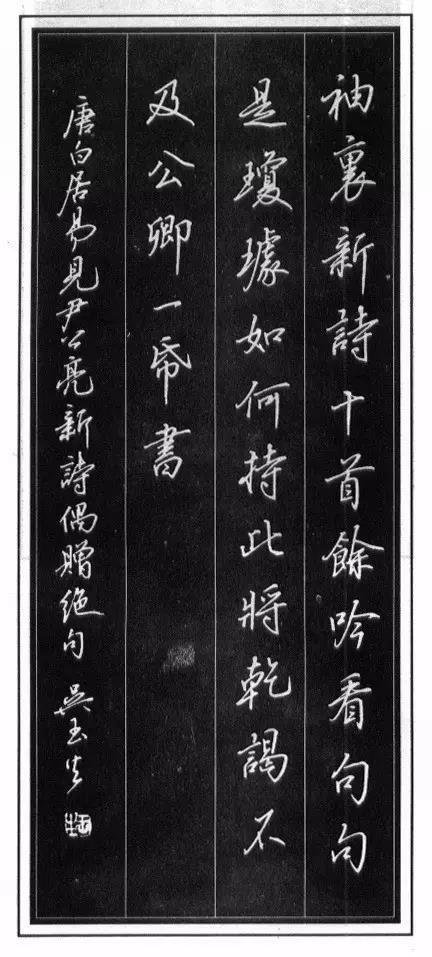 袖裏新詩十首餘吟看句句
是瓊璩如何持此將乾謁不
及公卿一帋書
唐白居易見尹公亮新詩偶贈絶句 吳玉生